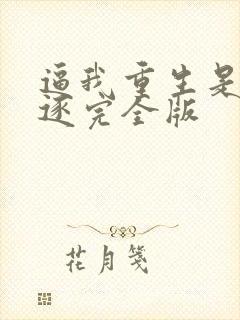 逼我重生是
逐完全版
花月笺